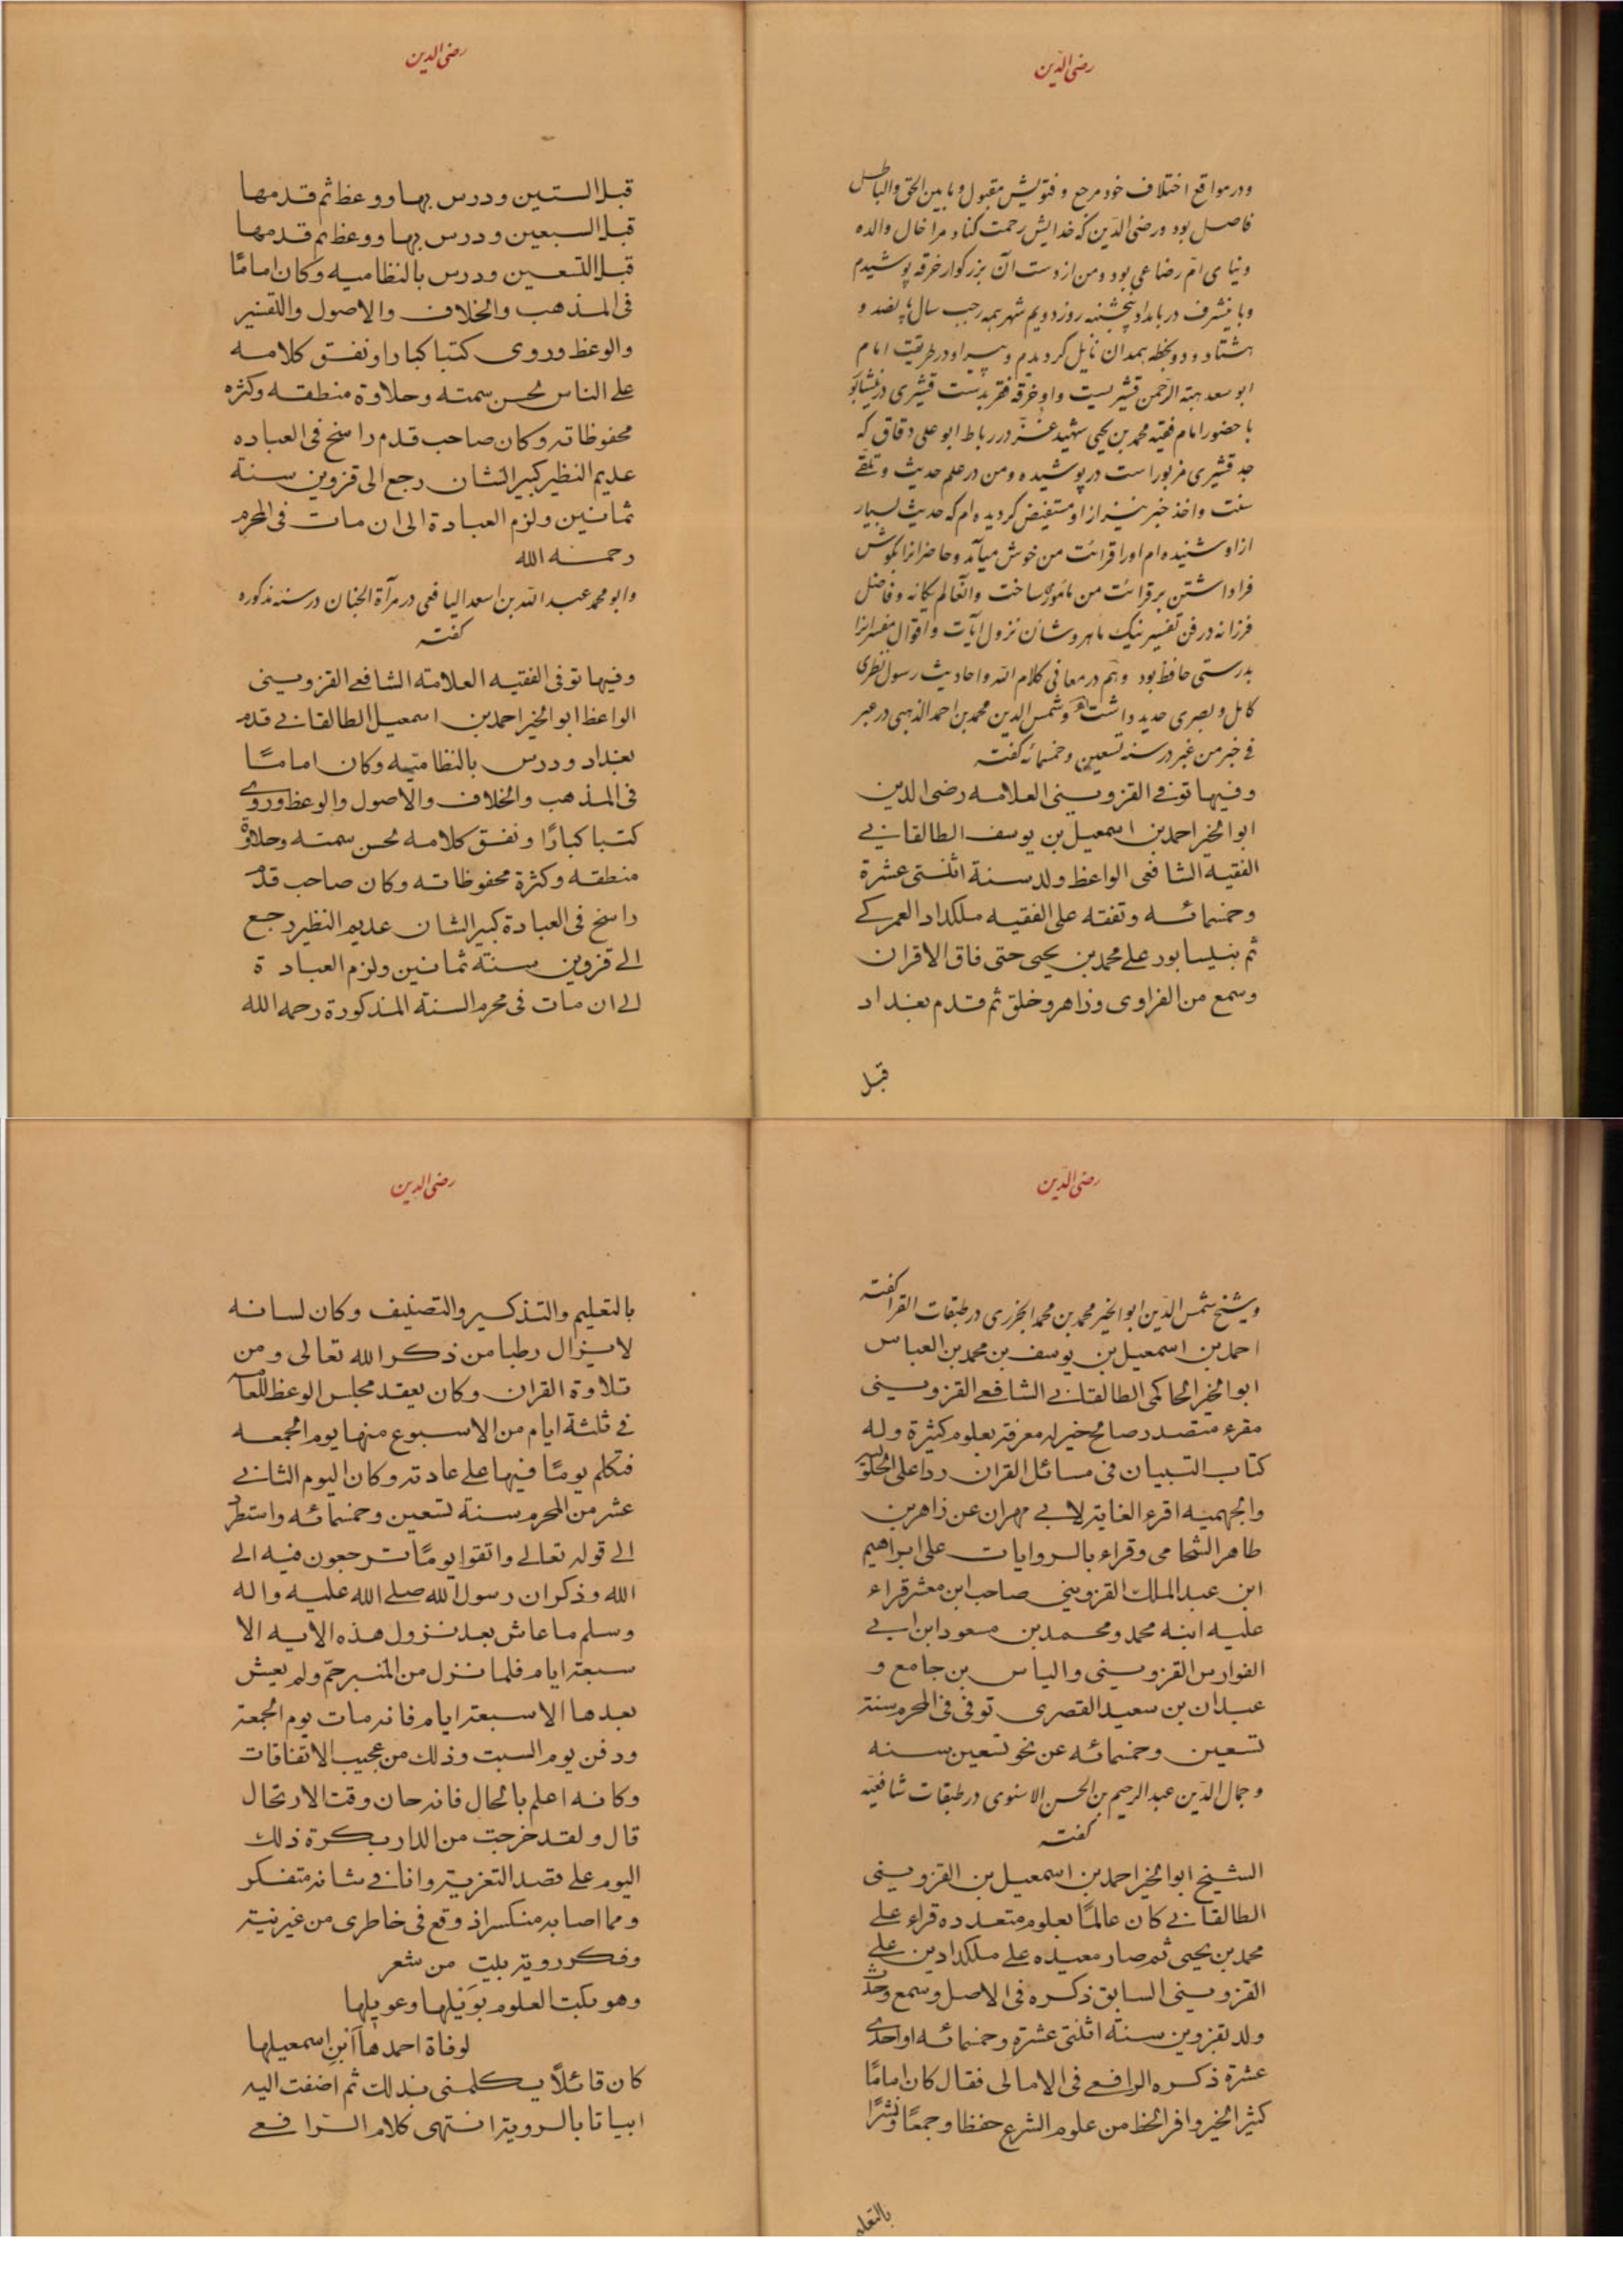 رضی الدین
ودر مواقع اختلاف خود مرجع وفتویش مقبول وما بین الحق والباطل
فاصل بود ورضی الدین که خدایش رحمت کناد مرا خال والده
ونیای ام رضاعی بود ومن از دست آن بزرکوار خرقه پوشیدم
وباینشرف در بامداد پنجشنبه روز دویم شهر رجب سال پانصد و
هشتاد ودو بخطه همدان نایل کردیدم وپیر او در طریقت امام
ابو سعد هبة الرحمن قشیریست واو خرقه فقر بدست قشیری در نیشابور
با حضور امام فقیه محمد بن یحیی شهید غز در رباط ابو علی دقاق که
جد قشیری مزبور است در پوشیده ومن در علم حدیث وتلقی
سنت واخذ خبر نیز از او مستفیض کردیده ام که حدیث بسیار
از او شنیده ام اورا قرائت من خوش میآمد وحاضرانرا بکوش
فرا داشتن بر قرائت من مأمور ساخت وآنعالم یکانه وفاضل
فرزانه در فن تفسیر نیک ماهر وشان نزول آیات واقوال مفسرانرا
بدرستی حافظ بود وهم در معانی کلام الله واحادیث رسول نظری
کامل وبصری حدید داشت وشمس الدین محمد بن احمد الذهبی در عبر
فی خبر من غبر در سنه تسعین وخمسمائه کفته
وفیها توفی القزوینی العلامه رضی الدین
ابو الخیر احمد بن اسمعیل بن یوسف الطالقانی
الفقیه الشافعی الواعظ ولد سنة اثنتی عشرة
وخمسمائه وتفقه علی الفقیه ملکداد العمرکی
ثم بنیسابور علی محمد بن یحیی حتی فاق الاقران
وسمع من الفراوی وزاهر وخلق ثم قدم بغداد
قبل
رضی الدین
قبل الستین ودرس بها ووعظ ثم قدمها
قبل السبعین ودرس بها ووعظ ثم قدمها
قبل التسعین ودرس بالنظامیه وکان امامًا
فی المذهب والخلاف والاصول والتفسیر
والوعظ وروی کتبا کبارا ونفق کلامه
علی الناس لحسن سمته وحلاوة منطقه وکثره
محفوظاته وکان صاحب قدم راسخ فی العباده
عدیم النظیر کبیر الشان رجع الی قزوین سنة
ثمانین ولزم العبادة الی ان مات فی المحرم
رحمه الله
وابو محمد عبد الله بن اسعد الیافعی در مرآة الجنان در سنه مذکوره
کفته
وفیها توفی الفقیه العلامة الشافعی القزوینی
الواعظ ابو الخیر احمد بن اسمعیل الطالقانی قدم
بغداد ودرس بالنظامیه وکان امامًا
فی المذهب والخلاف والاصول والوعظ وروی
کتبا کبارًا ونفق کلامه لحسن سمته وحلاوة
منطقه وکثرة محفوظاته وکان صاحب قدم
راسخ فی العبادة کبیر الشان عدیم النظیر رجع
الی قزوین سنة ثمانین ولزم العبادة
الی ان مات فی محرم السنة المذکورة رحمه الله
رضی الدین
وشیخ شمس الدین ابو الخیر محمد بن محمد الجزری در طبقات القرا کفته
احمد بن اسمعیل بن یوسف بن محمد بن العباس
ابو الخیر الحاکمی الطالقانی الشافعی القزوینی
مقرء متصدر صالح خیر له معرفة بعلوم کثیرة وله
کتاب التبیان فی مسائل القران ردا علی الحلولیه
والجهمیه اقرء الغایة لابی مهران عن زاهر بن
طاهر الشحامی وقراء بالروایات علی ابراهیم
ابن عبد الملک القزوینی صاحب ابن معشر قراء
علیه ابنه محمد ومحمد بن مسعود ابن ابی
الفوارس القزوینی والیاس بن جامع و
عبدان بن سعید القصری توفی فی المحرم سنة
تسعین وخمسمائه عن نحو تسعین سنه
وجمال الدین عبد الرحیم بن الحسن الاسنوی در طبقات شافعیه
کفته
الشیخ ابو الخیر احمد بن اسمعیل بن القزوینی
الطالقانی کان عالمًا بعلوم متعدده قراء علی
محمد بن یحیی ثم صار معیده علی ملکداد بن علی
القزوینی السابق ذکره فی الاصل وسمع وحدث
ولد بقزوین سنة اثنتی عشرة وخمسمائه او احدی
عشرة ذکره الرافعی فی الامالی فقال کان امامًا
کثیر الخیر وافر الحظ من علوم الشرع حفظا وجمعًا ونشرًا
بالتعلیم
رضی الدین
بالتعلیم والتذکیر والتصنیف وکان لسانه
لا یزال رطبا من ذکر الله تعالی ومن
تلاوة القران وکان یعقد مجلس الوعظ للعامة
فی ثلثة ایام من الاسبوع منها یوم الجمعه
فتکلم یومًا فیها علی عادته وکان الیوم الثانی
عشر من المحرم سنة تسعین وخمسمائه واستطرد
الی قوله تعالی واتقوا یومًا ترجعون فیه الی
الله وذکر ان رسول الله صلی الله علیه واله
وسلم ما عاش بعد نزول هذه الایه الا
سبعة ایام فلما نزل من المنبر حمّ ولم یعش
بعدها الا سبعة ایام فانه مات یوم الجمعة
ودفن یوم السبت وذلک من عجیب الاتفاقات
وکانه اعلم بالحال فانه حان وقت الارتحال
قال ولقد خرجت من الدار بکرة ذلک
الیوم علی قصد التعزیة وانا فی شانه متفکر
ومما اصابه منکسر اذ وقع فی خاطری من غیر نیة
وفکر رویة بیت من شعر
وهو بکت العلوم بویلها وعویلها
لوفاة احمدها ابن اسمعیلها
کان قائلًا یکلمنی بذلک ثم اضفت الیه
ابیاتا بالرویة انتهی کلام الرافعی